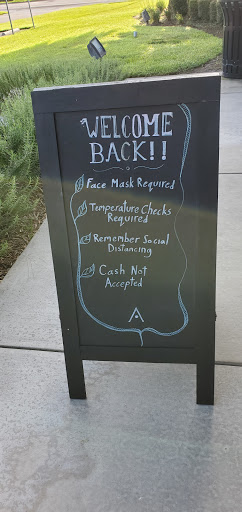 WELCOME
BACK!!
Face Mask Required
Temperature Checks
Required
Remember Social
Distancing
Cash Not
Accepted